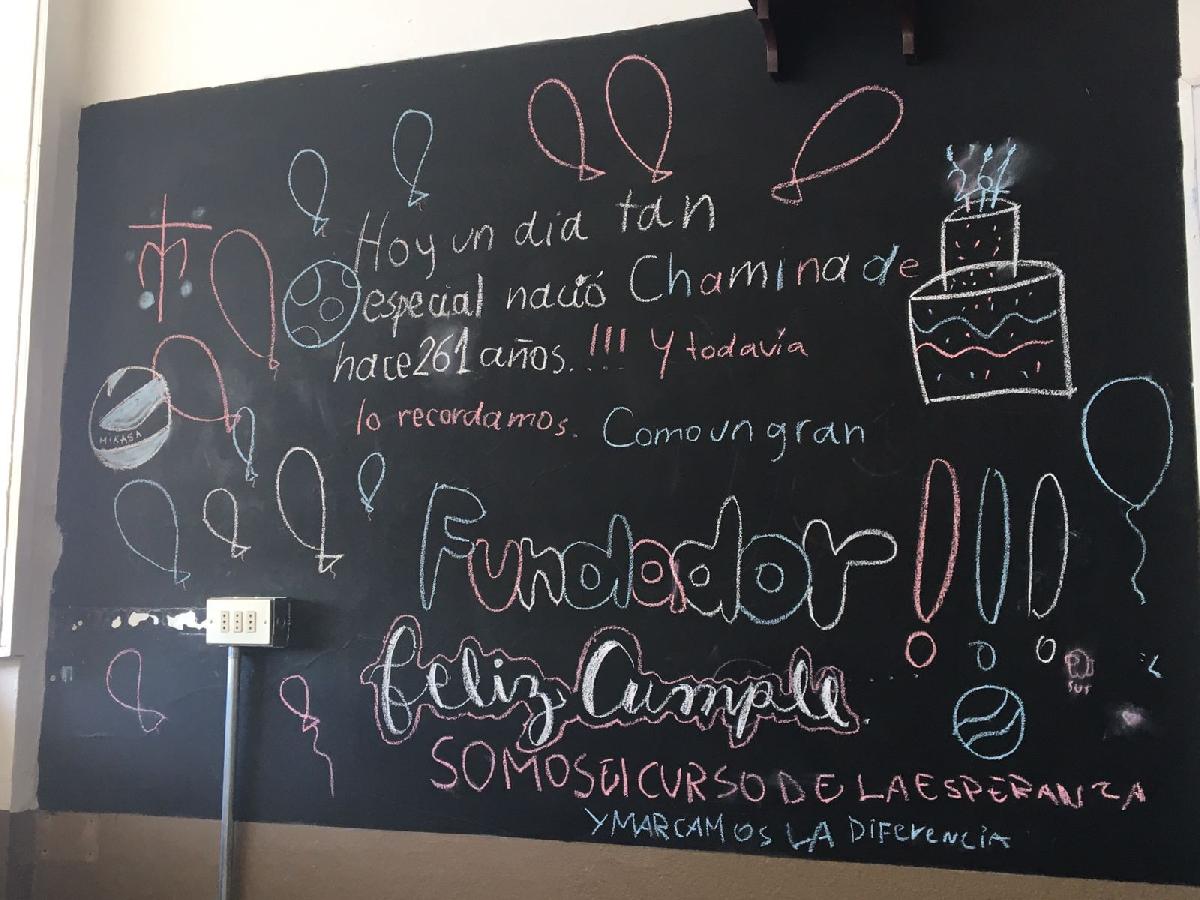 261
Hoy un dia tan
especial nació Chaminade
hace 261 años. !!! Y todavia
lo recordamos. Como un gran
MIKASA
Fundador !!!
feliz Cumple
SOMOS El CURSO DE LA ESPERANZA
Y MARCAMOS LA DiFerenciA